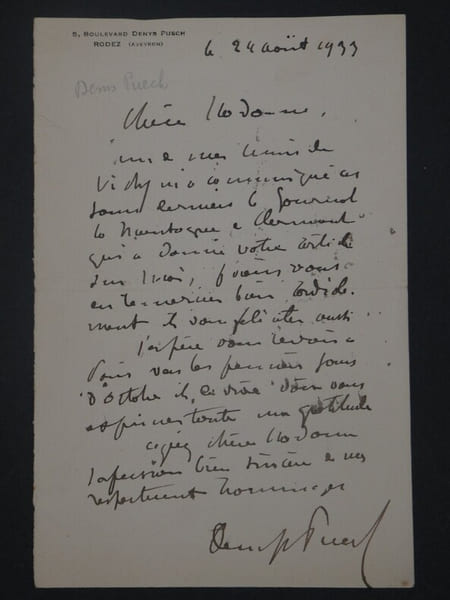 5, BOULEVARD DENYS PUECH
RODEZ (AVEYRON)
le 24 août 1933
Denis Puech
Chère Madame,
une de mes amies de
Vichy m'a communiqué ces
jours derniers le journal
la Montagne de Clermont
qui a donné votre article
sur moi, je viens vous
en remercier bien cordiale
ment et vous féliciter aussi
J'espère vous revoir à
Paris vers les premiers jours
d'octobre et de vive voix vous
exprimer toute ma gratitude
agréez chère Madame
l'expression bien sincère de mes
respectueux hommages
Denys Puech